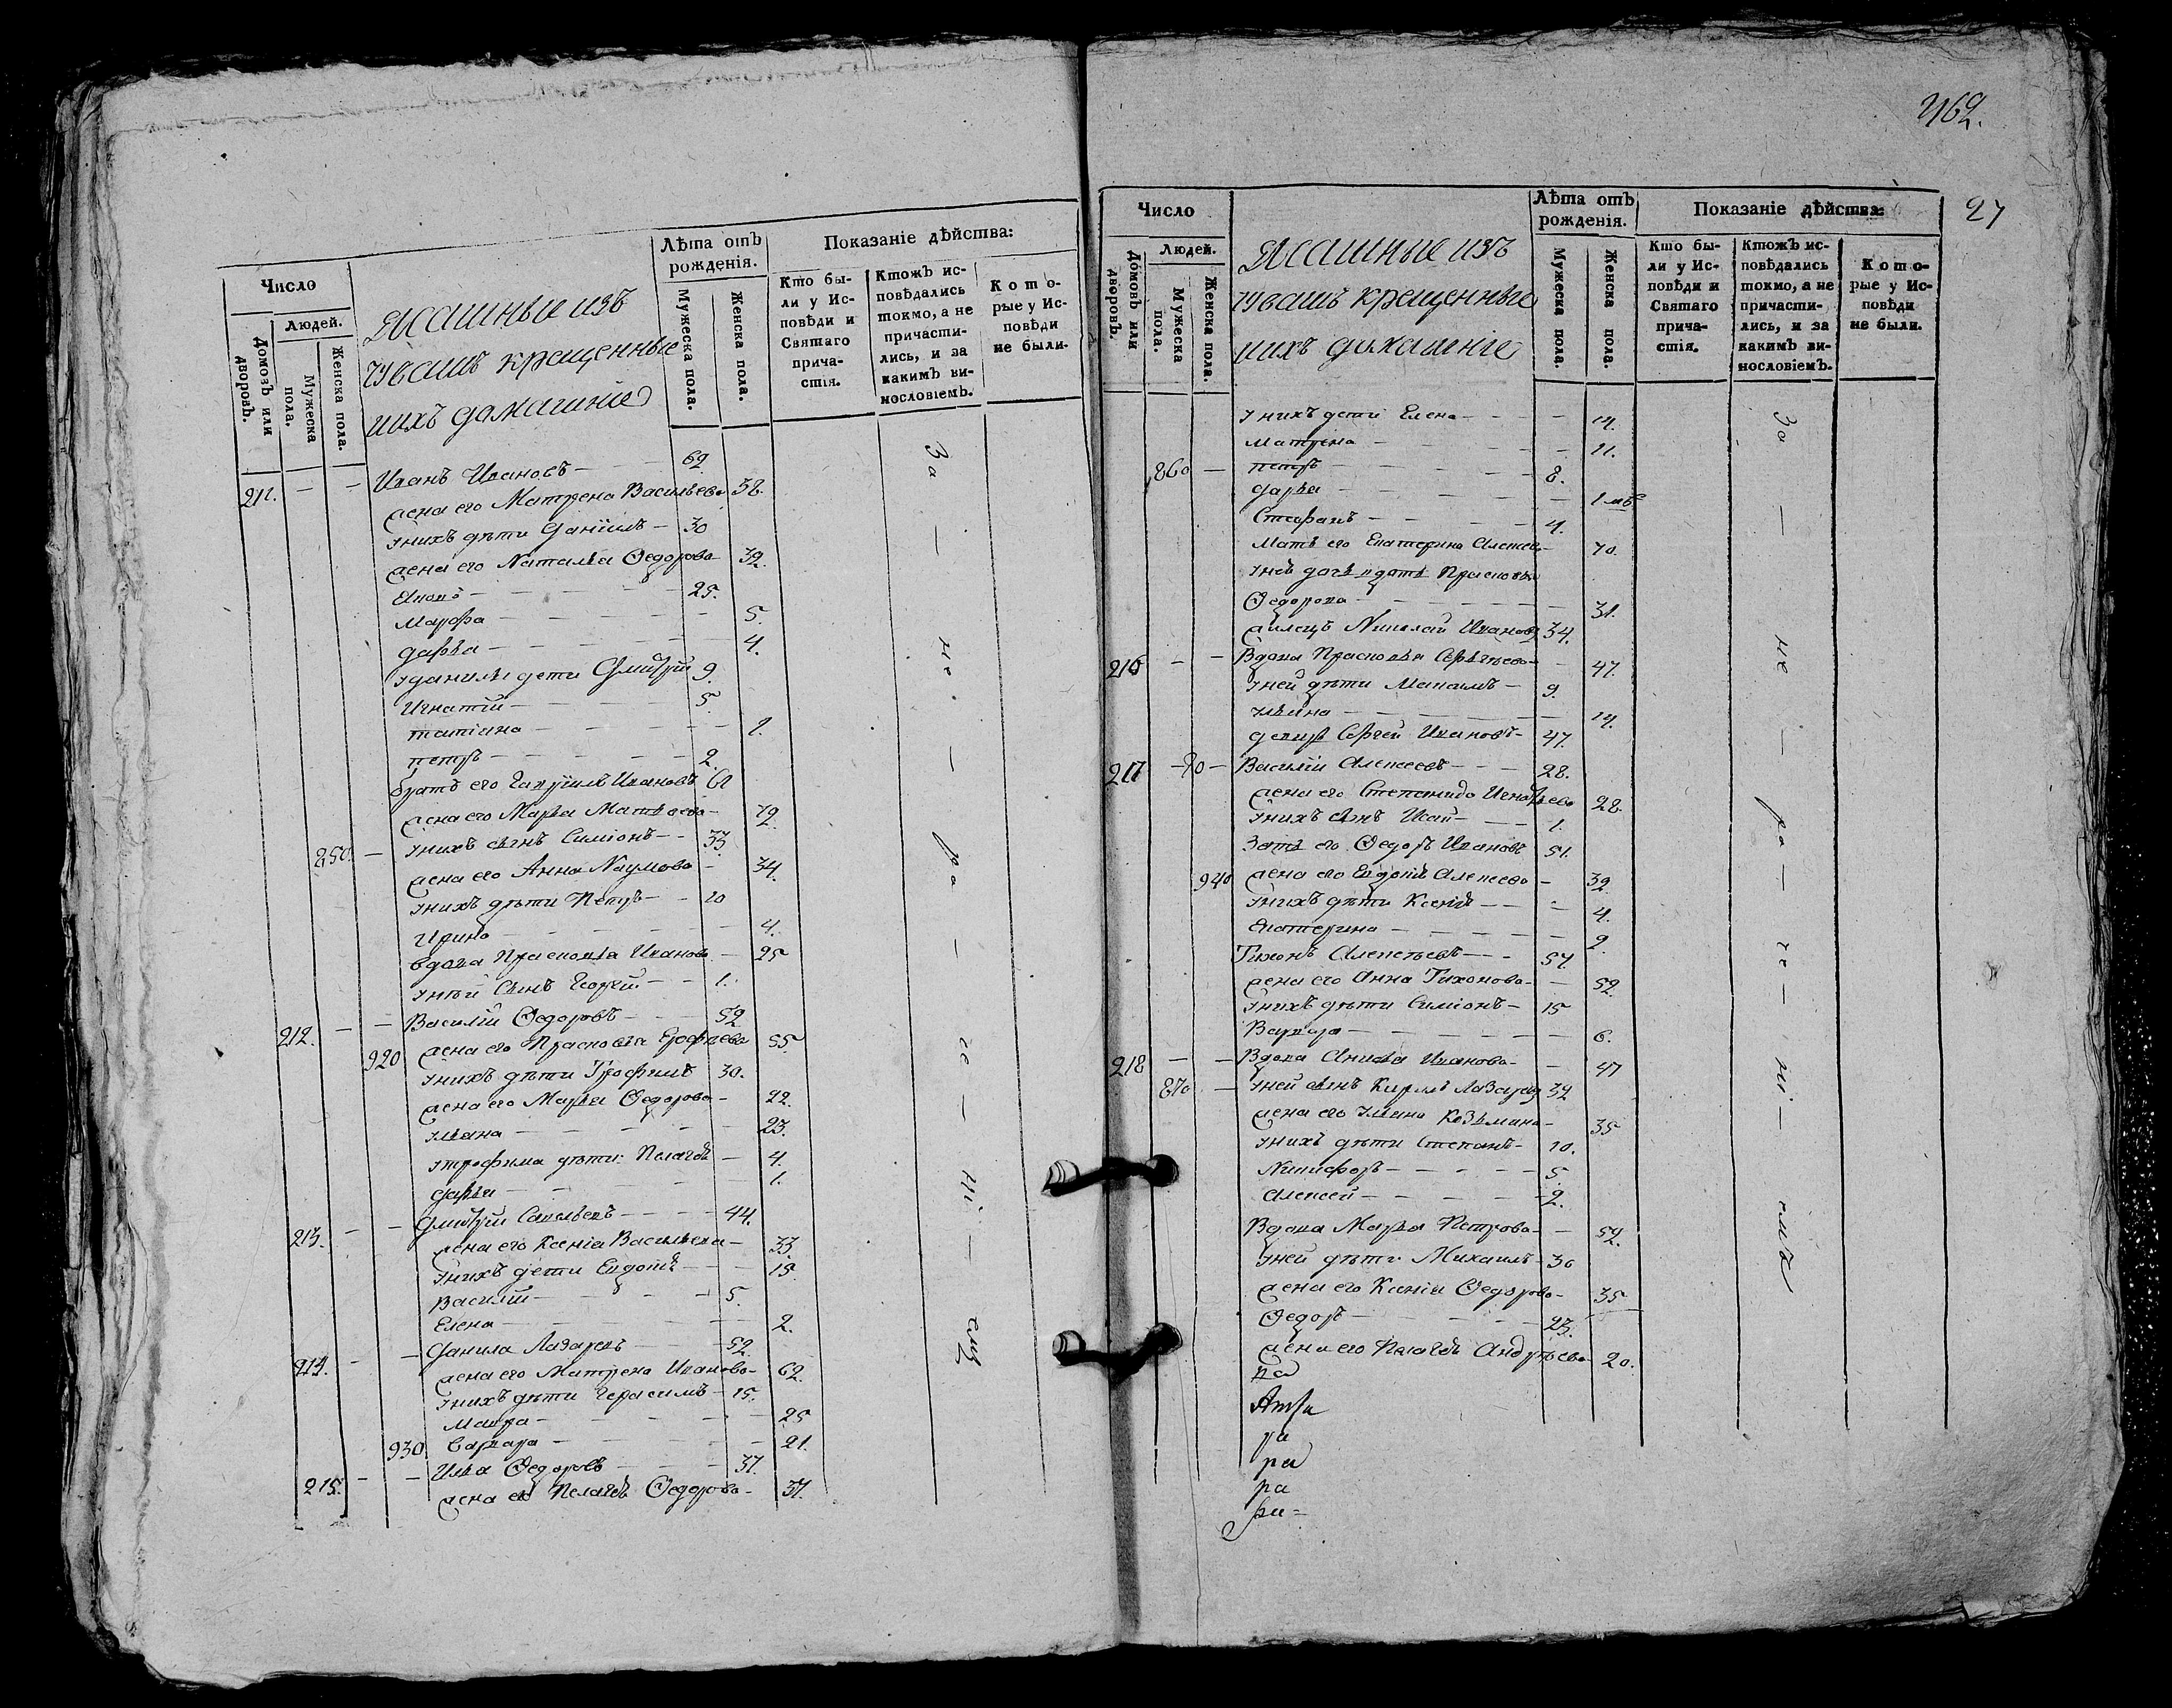 Число
Людей.
Домовъ или дворовъ.
Мужеска пола.
Женска пола.
Ясашные изъ
чувашъ крещенные
ихъ домашніе
Лѣта отъ рожденія.
Мужеска пола.
Женска пола.
Показаніе дѣйства:
Кто бы-
ли у Ис-
повѣди и
Святаго
прича-
стія.
Ктожъ ис-
повѣдались
токмо, а не
причасти-
лись, и за
какимъ ви-
нословіемъ.
Кото-
рые у Ис-
повѣди
не были.
211. — — Иванъ Ивановъ — 62
жена его Матрена Васильева 38.
у нихъ дѣти Даніилъ — 30
жена его Наталья Ѳедорова 32.
— 25.
Марфа — 5.
дарья — 4.
у данилы дети Дмитрій 9.
Игнатій — 5.
татіана — 1.
петръ — 2.
братъ его Гавріилъ Ивановъ 61
жена его Марья Матвеева —
850. — у нихъ сынъ Симіонъ — 33.
жена его Анна Наумова — 34.
у нихъ дѣти Петръ — 10
Ирина — 4.
вдова Прасковья Иванова — 25
у ней сынъ Георгій — 1.
212. — — Василій Ѳедоровъ — 52
920 жена его Прасковья Ерофеева 55
у нихъ дѣти Трофимъ 30.
жена его Марья Ѳедорова — 22.
ульяна — 23.
у трофима дѣти: Пелагея — 4.
дарья — 1.
213. — — Дмитрій Савельевъ — 44.
жена его Ксенія Васильева — 33.
у нихъ дети Евдокія — 15.
Василій — 5.
Елена — 2.
214. — — Данила Лазаревъ — 52.
жена его Матрена Иванова — 62.
у нихъ дѣти Герасимъ — 15.
Мавра — 25
930 Варвара — 21.
215. — — Илья Ѳедоровъ — 37.
жена его Пелагея Ѳедорова — 37.
За — не — ра — че — ні — емъ
462.
27
Число
Людей.
Домовъ или дворовъ.
Мужеска пола.
Женска пола.
Ясашные изъ
чувашъ крещенные
ихъ домашніе
Лѣта отъ рожденія.
Мужеска пола.
Женска пола.
Показаніе дѣйства:
Кто бы-
ли у Ис-
повѣди и
Святаго
прича-
стія.
Ктожъ ис-
повѣдались
токмо, а не
причасти-
лись, и за
какимъ ви-
нословіемъ.
Кото-
рые у Ис-
повѣди
не были.
у нихъ дети Елена — 14.
Матрена — 11.
860 — петръ — 8.
дарья — 1
Стефанъ — 4.
Мать его Екатерина 70.
у ней дочь Прасковья
Ѳедорова — 31.
Николай Ивановъ 34.
216 — — Вдова Прасковья Сергеева — 47.
у ней дѣти Максимъ — 9.
ульяна — 14.
Сергей Ивановъ — 47.
217 — — Василій Алексеевъ — 28.
жена его Степанида Игнатьева 28.
у нихъ сынъ Исай — 1.
Зять его Ѳедоръ Ивановъ 51.
940 жена его Евдокія Алексеева — 32
у нихъ дѣти Ксенія — 4.
Екатерина — 2.
Тихонъ 57.
жена его Анна Тихонова — 52.
у нихъ дѣти Симіонъ — 15
Варвара — 6.
218 — — Вдова Анисья Иванова — 47
870 — у ней сынъ Кирилъ Лазаревъ 32
жена его ульяна Козьмина — 35
у нихъ дѣти Степанъ — 10.
Никифоръ — 5.
Алексей — 2.
Вдова Марья Петрова — 52.
у ней дѣти Михаилъ — 30
жена его Ксенія Ѳедорова — 35
Ѳедоръ — 23.
жена его Пелагея Андреева 20.
ра
ра
ра
За — не — ра — че — ні — емъ